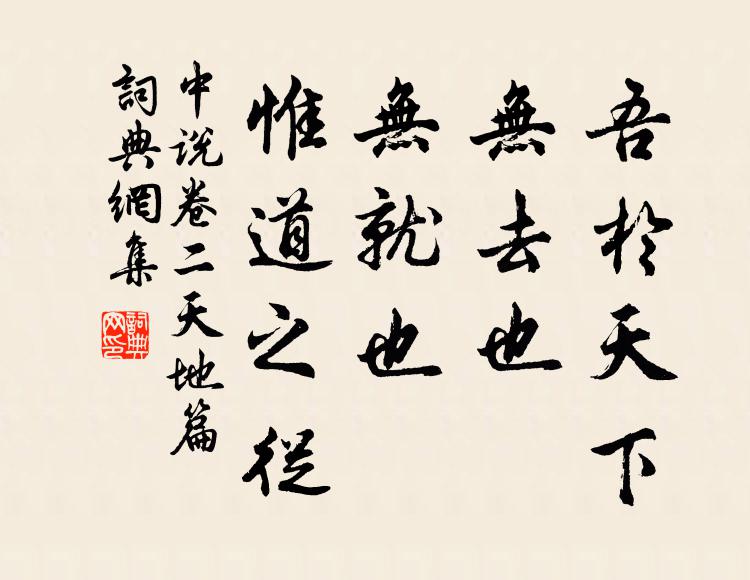 吾於天下
無去也
無就也
惟道之從
中说卷二天地篇
詞典網集
詞典网印